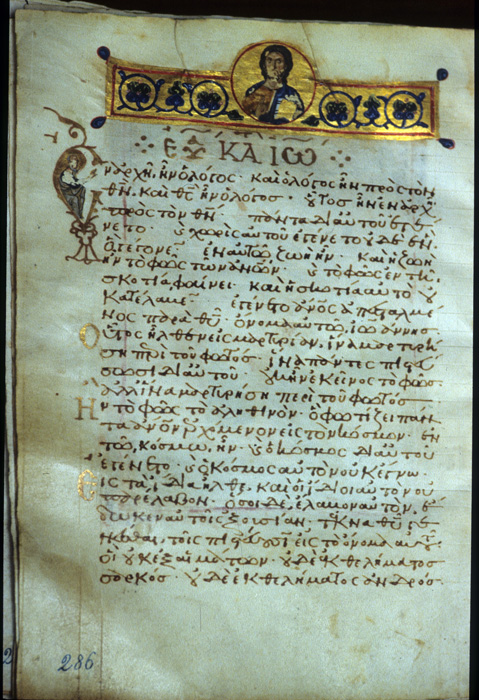 ΕΥ ΚΑ ΙΩ
Ἐν ἀρχῆ ἦν ὁ λόγος· καὶ ὁ λόγος ἦν πρὸς τὸν
θν̄· καὶ θς̄ ἦν ὁ λόγος· οὗτος ἦν ἐν ἀρχῆ
πρὸς τὸν θν̄· πάντα δι αὐτοῦ ἐγέ
νετο· καὶ χωρὶς αὐτοῦ ἐγένετο οὐδὲ ἓν
ὃ γέγονεν· ἐν αὐτῶ ζωὴ ἦν· καὶ ἡ ζωὴ
ἦν τὸ φῶς τῶν ἀνω̄ν· καὶ τὸ φῶς ἐν τῆ
σκοτία φαίνει· καὶ ἡ σκοτία αὐτὸ οὐ
κατέλαβε· ἐγένετο ἄνος̄ ἀπεσταλμέ
νος παρὰ θῡ· ὄνομα αὐτῶ, ἰωάννης·
οὗτος ἦλθεν εἰς μαρτυρίαν, ἵνα μαρτυρή
ση περὶ τοῦ φωτός· ἵνα πάντες πιστεύ
σωσι δι αὐτοῦ· οὐκ ἦν ἐκεῖνος τὸ φῶς·
ἀλλ ἵνα μαρτυρήση περὶ τοῦ φωτός
Ἦν τὸ φῶς τὸ ἀληθινὸν· ὃ φωτίζει πάν
τα ἄνον̄ ἐρχόμενον εἰς τὸν κόσμον· ἐν
τῶ κόσμω ἦν· καὶ ὁ κόσμος δι αὐτοῦ
ἐγένετο· καὶ ὁ κόσμος αὐτὸν οὐκ ἔγνω·
εἰς τὰ ἴδια ἦλθε· καὶ οἱ ἴδιοι αὐτὸν οὐ
παρέλαβον· ὅσοι δὲ ἔλαβον αὐτὸν, ἔ
δωκεν αὐτοῖς ἐξουσίαν, τέκνα θῡ γε
νέσθαι, τοῖς πιστεύουσιν εἰς τὸ ὄνομα αὐτοῦ
οἳ οὐκ ἐξ αἱμάτων· οὐδὲ ἐκ θελήματος
σαρκός· οὐδὲ ἐκ θελήματος ἀνδρός
286